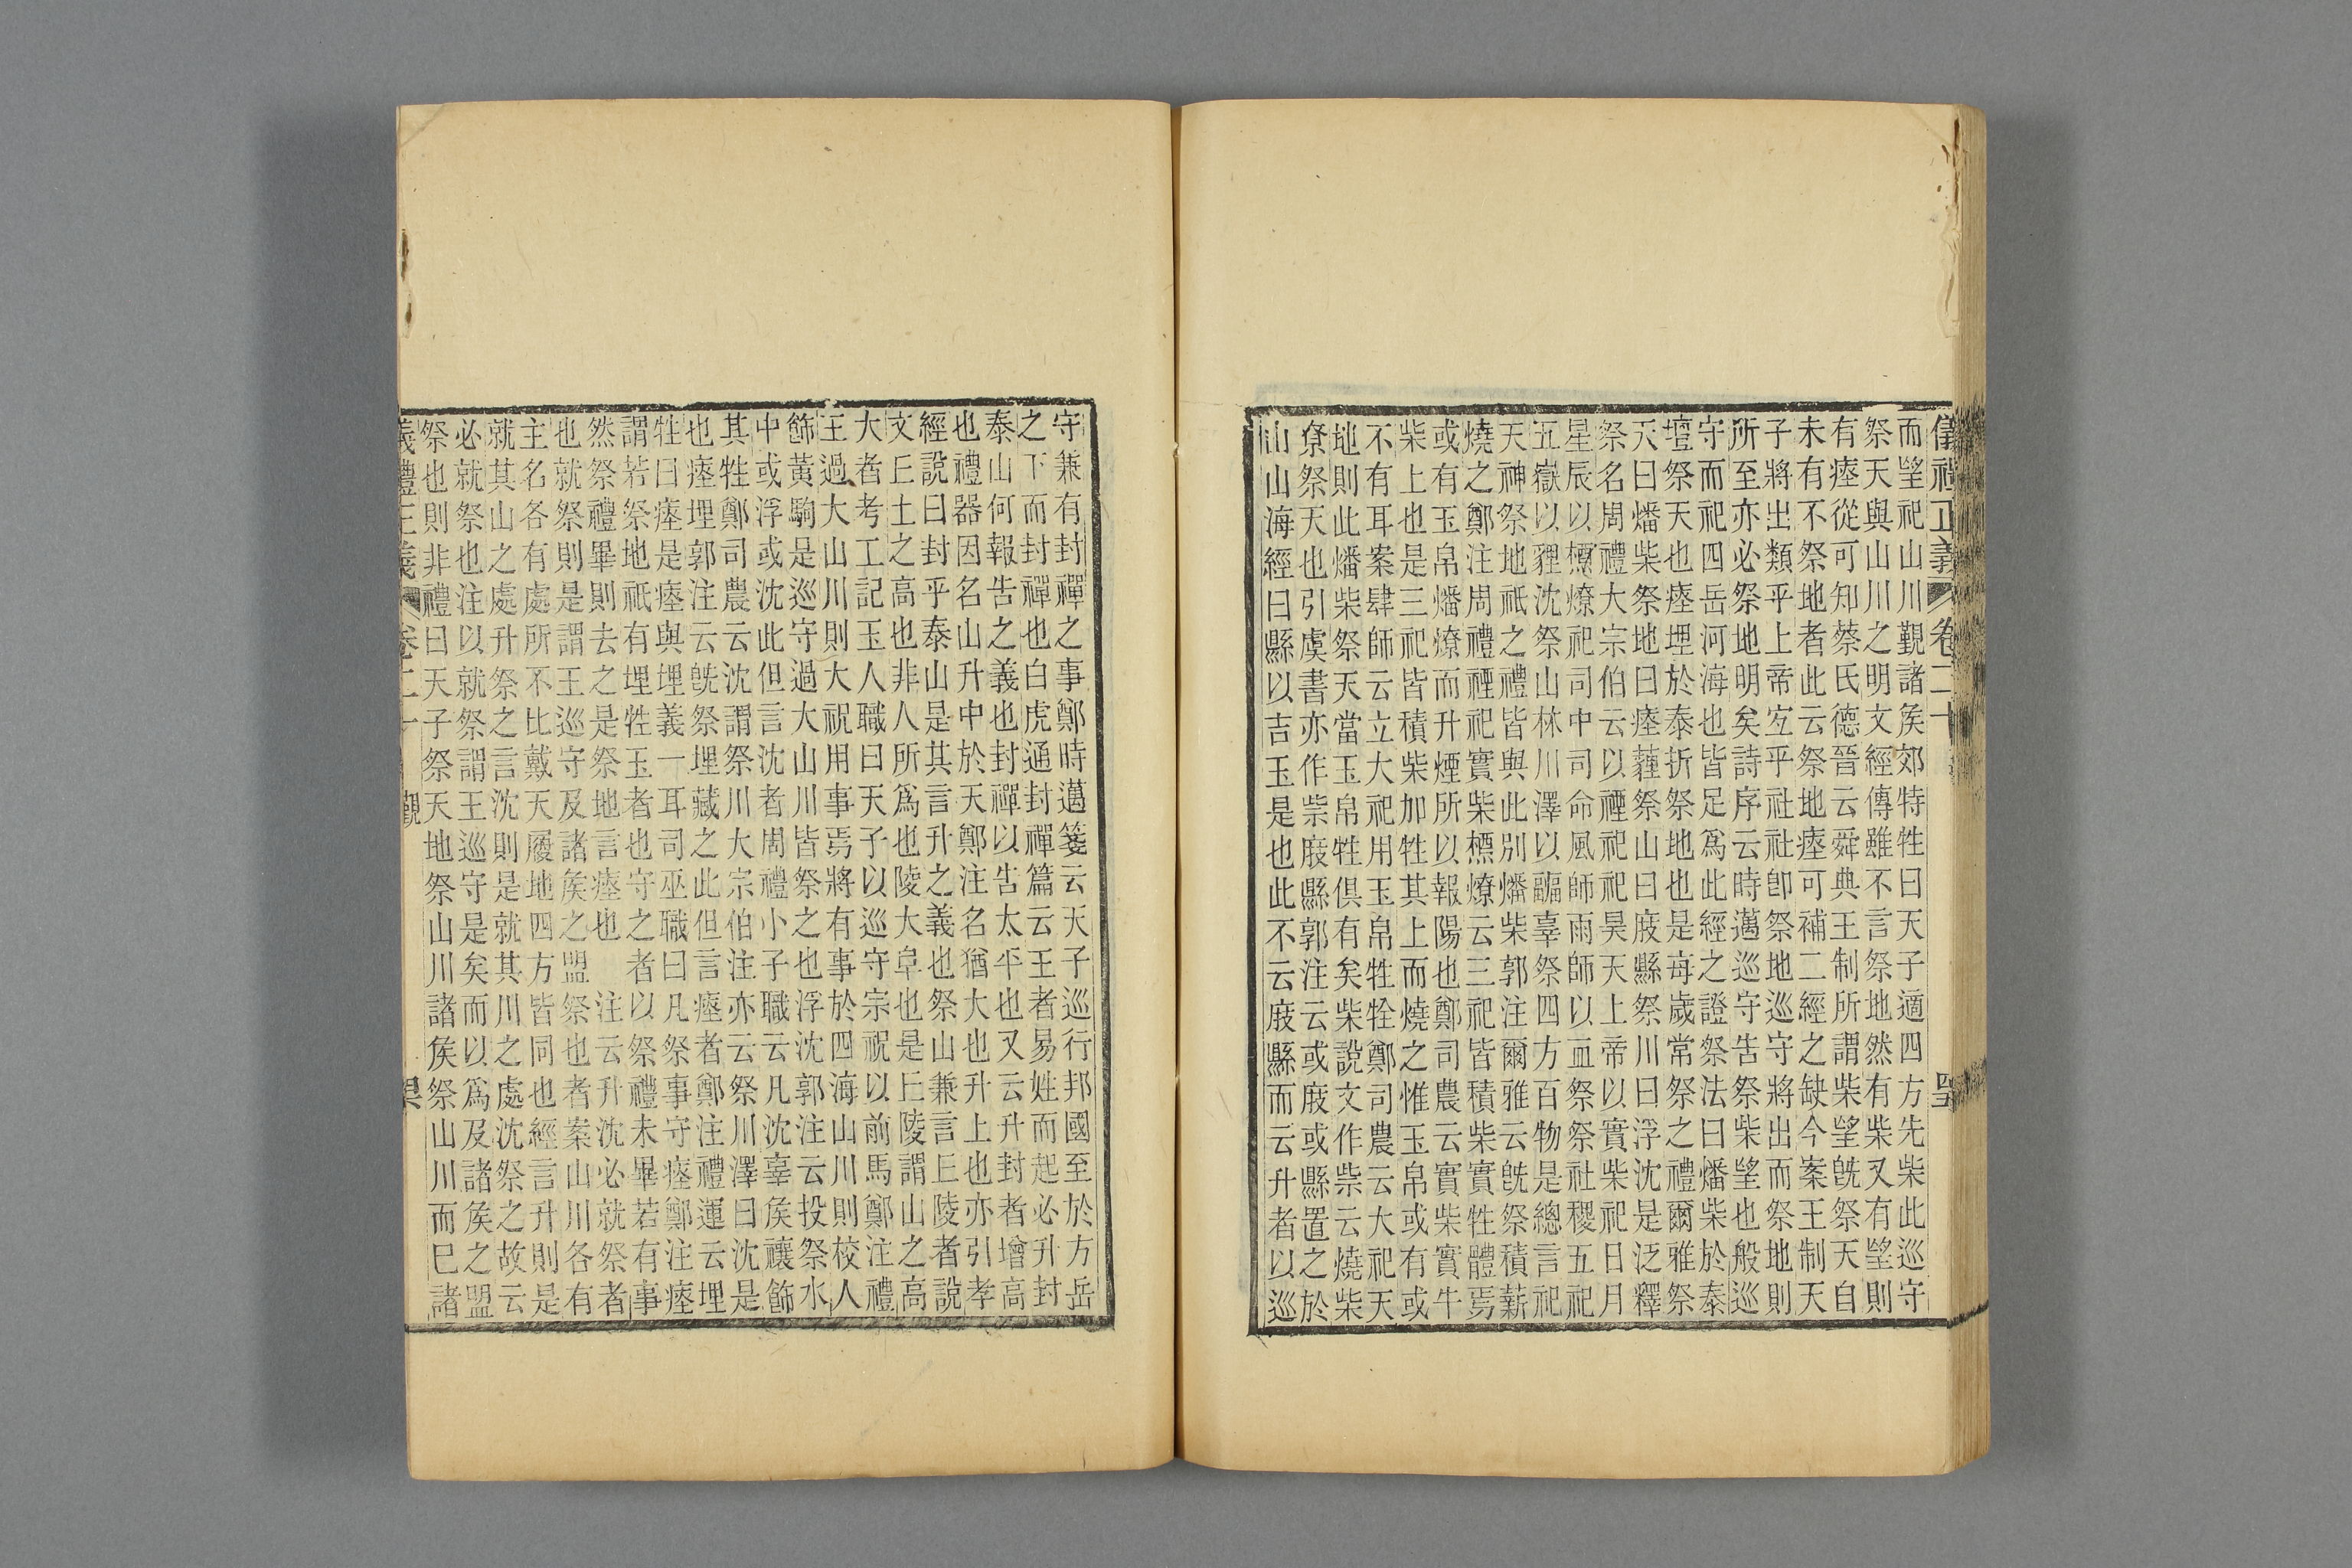 儀禮正義 卷二十
而望祀山川覲諸矦郊特牲曰天子適四方先柴此巡守
祭天與山川之明文經傳雖不言祭地然有柴又有望則
有瘞從可知蔡氏德晉云舜典王制所謂柴望旣祭天自
未有不祭地者此云祭地瘞可補二經之缺今案王制天
子將出類乎上帝宐乎社社卽祭地巡守將出而祭地則
所至亦必祭地明矣詩序云時邁巡守告祭柴望也般巡
守而祀四岳河海也皆足爲此經之證祭法曰燔柴於泰
壇祭天也瘞埋於泰折祭地也是每歲常祭之禮爾雅祭
天曰燔柴祭地曰瘞薶祭山曰庪縣祭川曰浮沈是泛釋
祭名周禮大宗伯云以禋祀祀昊天上帝以實柴祀日月
星辰以槱燎祀司中司命風師雨師以血祭祭社稷五祀
五嶽以貍沈祭山林川澤以疈辜祭四方百物是總言祀
天神祭地祇之禮皆與此別燔柴郭注爾雅云旣祭積薪
燒之鄭注周禮禋祀實柴槱燎云三祀皆積柴實牲體焉
或有玉帛燔燎而升煙所以報陽也鄭司農云實柴實牛
柴上也是三祀皆積柴加牲其上而燒之惟玉帛或有或
不有耳案肆師云立大祀用玉帛牲牷鄭司農云大祀天
地則此燔柴祭天當玉帛牲俱有矣柴說文作祡云燒柴
尞祭天也引虞書亦作祡庪縣郭注云或庪或縣置之於
山山海經曰縣以吉玉是也此不云庪縣而云升者以巡
守兼有封禪之事鄭時邁箋云天子巡行邦國至於方岳
之下而封禪也白虎通封禪篇云王者易姓而起必升封
泰山何報告之義也封禪以告太平也又云升封者增高
也禮器因名山升中於天鄭注名猶大也升上也亦引孝
經說曰封乎泰山是其言升之義也祭山兼言𠀉陵者說
文𠀉土之高也非人所爲也陵大阜也是𠀉陵謂山之高
大者考工記玉人職曰天子以巡守宗祝以前馬鄭注禮
王過大山川則大祝用事焉將有事於四海山川則校人
飾黃駒是巡守過大山川皆祭之也浮沈郭注云投祭水
中或浮或沈此但言沈者周禮小子職云凡沈辜矦禳飾
其牲鄭司農云沈謂祭川大宗伯注亦云祭川澤曰沈是
也瘞埋郭注云旣祭埋藏之此但言瘞者鄭注禮運云埋
牲曰瘞是瘞與埋義一耳司巫職曰凡祭事守瘞鄭注瘞
謂若祭地祇有埋牲玉者也守之者以祭禮未畢若有事
然祭禮畢則去之是祭地言瘞也 注云升沈必就祭者
也就祭則是謂王巡守及諸矦之盟祭也者案山川各有
主名各有處所不比戴天履地四方皆同也經言升則是
就其山之處升祭之言沈則是就其川之處沈祭之故云
必就祭也注以就祭謂王巡守是矣而以爲及諸矦之盟
祭也則非禮曰天子祭天地祭山川諸矦祭山川而巳諸
義禮正義 卷二十 覲